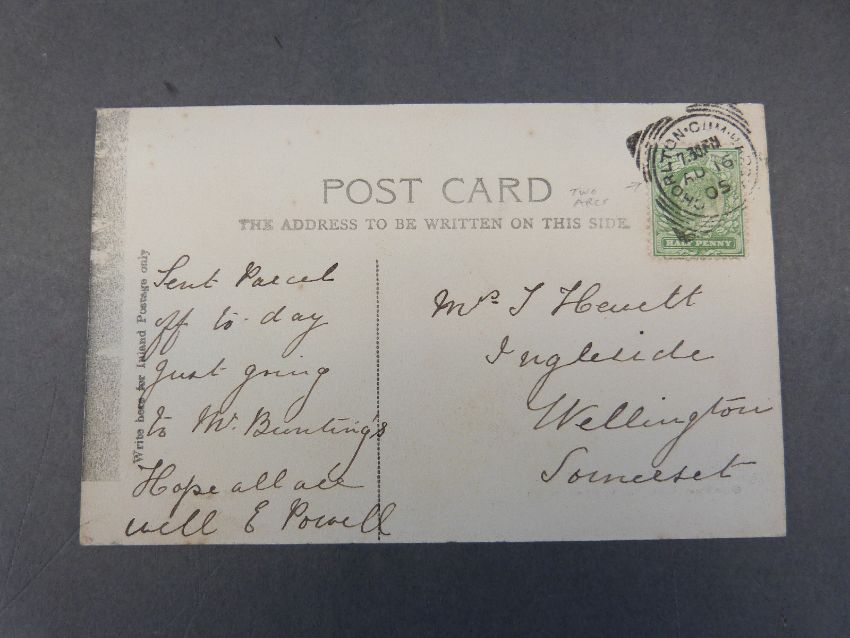 POST CARD
THE ADDRESS TO BE WRITTEN ON THIS SIDE.
TWO
ARCS
CHORLTON·CUM·HARDY
7.30PM
AU 16
05
HALF PENNY
Write here for Inland Postage only
Sent Parcel
off to-day
Just going
to Mr. Bunting's
Hope all are
well E Powell
Mrs J Hewett
Ingleside
Wellington
Somerset